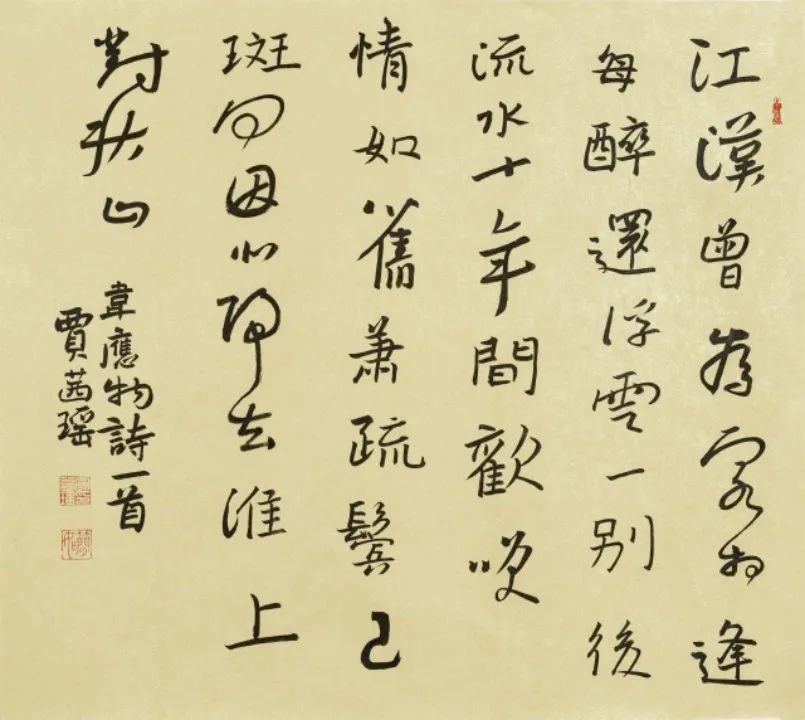 江漢曾為客相逢
每醉還浮雲一別後
流水十年間歡咲
情如舊蕭疏鬢已
斑何因北歸去淮上
對秋山
韋應物詩一首
賈茜瑶